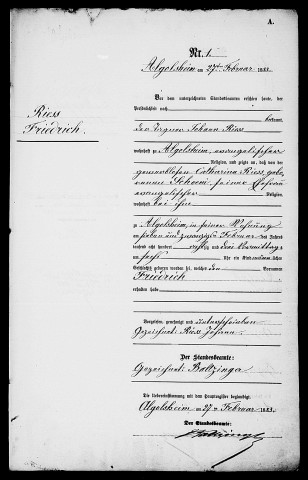 A.
Nr. 1
Algolsheim am 27ten Februar 1883.
Vor dem unterzeichneten Standesbeamten erschien heute, der
Persönlichkeit nach
bekannt,
Riess
Friedrich.
Johann Riess
wohnhaft zu Algolsheim, evangelischer
Religion, und zeigte an, daß von der
gewerblosen Catharina Riess, gebo-
renen Schoeni seiner Ehefrau
evangelischer Religion,
wohnhaft bei ihm
zu Algolsheim, in seiner Wohnung
am sieben und zwanzigsten Februar des Jahres
tausend acht hundert achtzig und drei Vormittags
um sechs Uhr ein Kind männlichen
Geschlechts geboren worden sei, welches den Vornamen
Friedrich
erhalten habe
Vorgelesen, genehmigt und unterschrieben
Gezeichnet: Riess Johann.
Der Standesbeamte:
Gezeichnet: Baltzinger
Die Uebereinstimmung mit dem Hauptregister beglaubigt
Algolsheim am 27ten Februar 1883.
Der Standesbeamte: